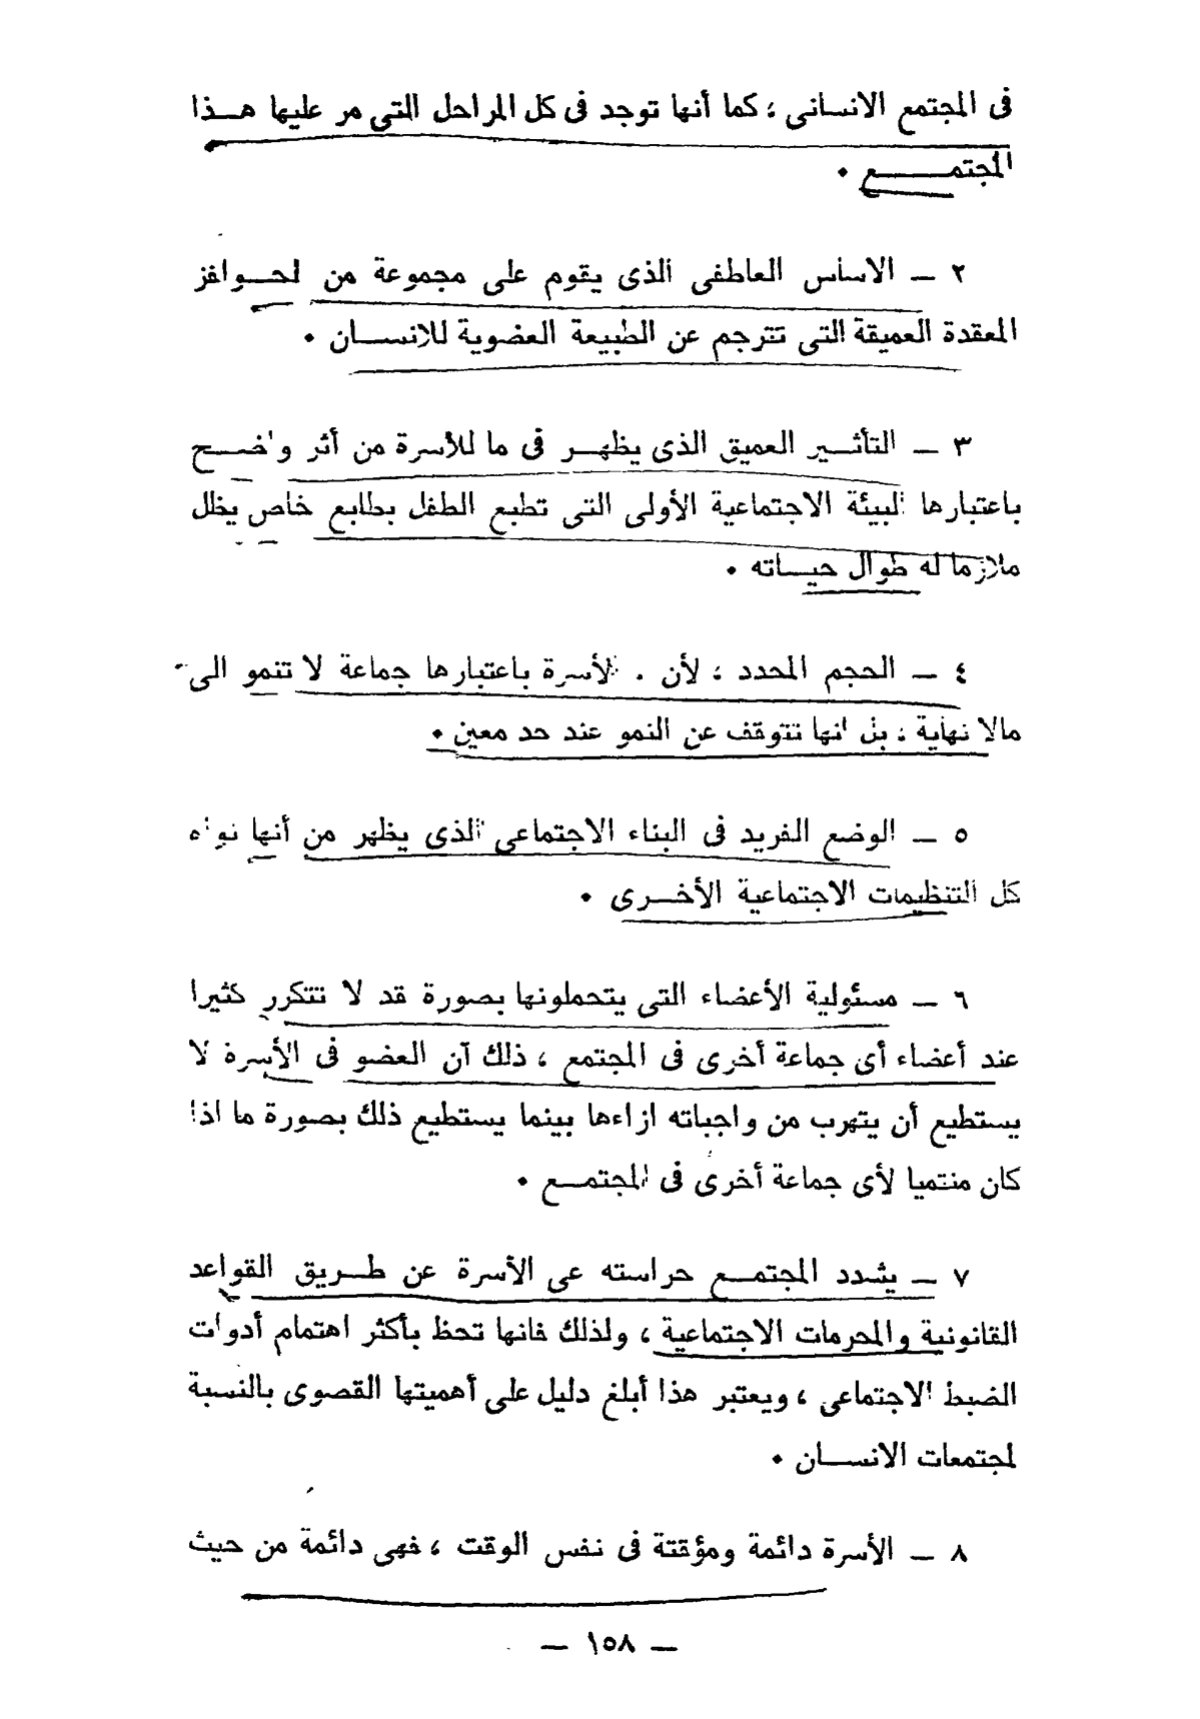 فى المجتمع الانسانى ، كما أنها توجد فى كل المراحل التى مر عليها هــذا
المجتمـــــع .
٢ ــ الاساس العاطفى الذى يقوم على مجموعة من لحــوافز
المعقدة العميقة التى تترجم عن الطبيعة العضوية للانســان .
٣ ــ التأثــير العميق الذى يظهــر فى ما للأسرة من أثر واضــح
باعتبارها البيئة الاجتماعية الأولى التى تطبع الطفل بطابع خاص يظل
ملازما له طوال حيــاته .
٤ ــ الحجم المحدد ، لأن . الأسرة باعتبارها جماعة لا تنمو الى
مالا نهاية ، بل انها تتوقف عن النمو عند حد معين .
٥ ــ الوضع الفريد فى البناء الاجتماعى الذى يظهر من أنها نواه
كل التنظيمات الاجتماعية الأخــرى .
٦ ــ مسئولية الأعضاء التى يتحملونها بصورة قد لا تتكرر كثيرا
عند أعضاء أى جماعة أخرى فى المجتمع ، ذلك آن العضو فى الأسرة لا
يستطيع أن يتهرب من واجباته ازاءها بينما يستطيع ذلك بصورة ما اذا
كان منتميا لأى جماعة أخرى فى المجتمــع .
٧ ــ يشدد المجتمــع حراسته عى الأسرة عن طــريق القواعد
القانونية والمحرمات الاجتماعية ، ولذلك فانها تحظ بأكثر اهتمام أدوات
الضبط الاجتماعى ، ويعتبر هذا أبلغ دليل على أهميتها القصوى بالنسبة
لمجتمعات الانســان .
٨ ــ الأسرة دائمة ومؤقتة فى نفس الوقت ، فهى دائمة من حيث
ــ ١٥٨ ــ